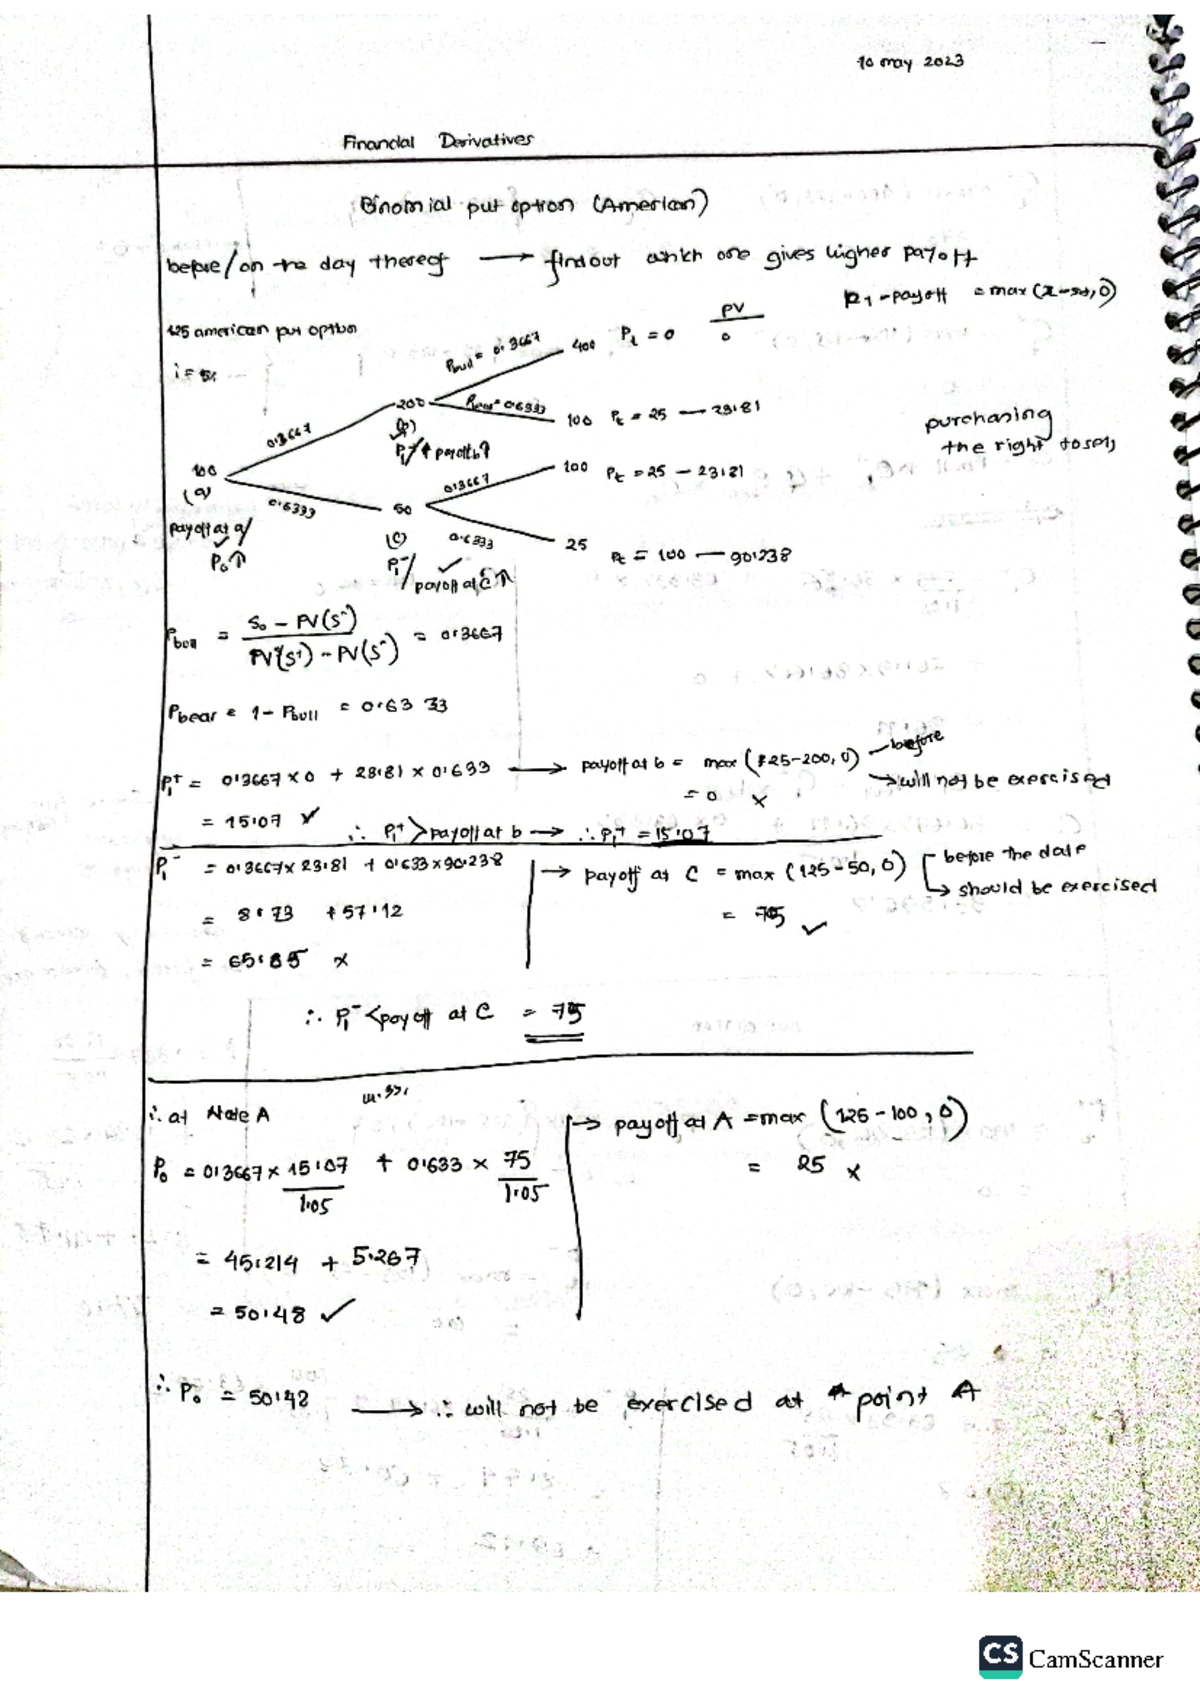 10 may 2023
Financial Derivatives
Binomial put option (American)
before/on the day thereof → find out which one gives higher payoff
P1 - payoff = max(x-st, 0)
125 american put option
i = 5%
PV
Pbull = 0.3667 400 Pt = 0 0
200 Pbear = 0.6333 100 Pt = 25 — 23.81
(b)
P1+/↑ payoff b?
purchasing
the right to sell
0.3667
100
(a)
0.6333
0.3667 100 Pt = 25 — 23.81
50
(c) 0.6333 25 Pt = 100 — 90.238
payoff at a/
P0↑
P1-/payoff at C↑
Pbull = S0 - PV(S-) / PV(S+) - PV(S-) = 0.3667
Pbear = 1 - Pbull = 0.63 33
P1+ = 0.3667 x 0 + 23.81 x 0.633 → payoff at b = max (125-200, 0) — before
→ will not be exercised
= 0 x
= 15.07 ✓ ∴ P1+ > payoff at b → ∴ P1+ = 15.07
P1- = 0.3667 x 23.81 + 0.633 x 90.238 → payoff at C = max (125-50, 0) before the date
→ should be exercised
= 8.73 + 57.12 = 75 ✓
= 65.85 x
∴ P1- < payoff at C = 75
∴ at Node A → payoff at A = max (125-100, 0)
P0 = 0.3667 x 15.07/1.05 + 0.633 x 75/1.05 = 25 x
= 45.214 + 5.267
= 50.48 ✓
∴ P0 = 50.48 → ∴ will not be exercised at point A
CS CamScanner